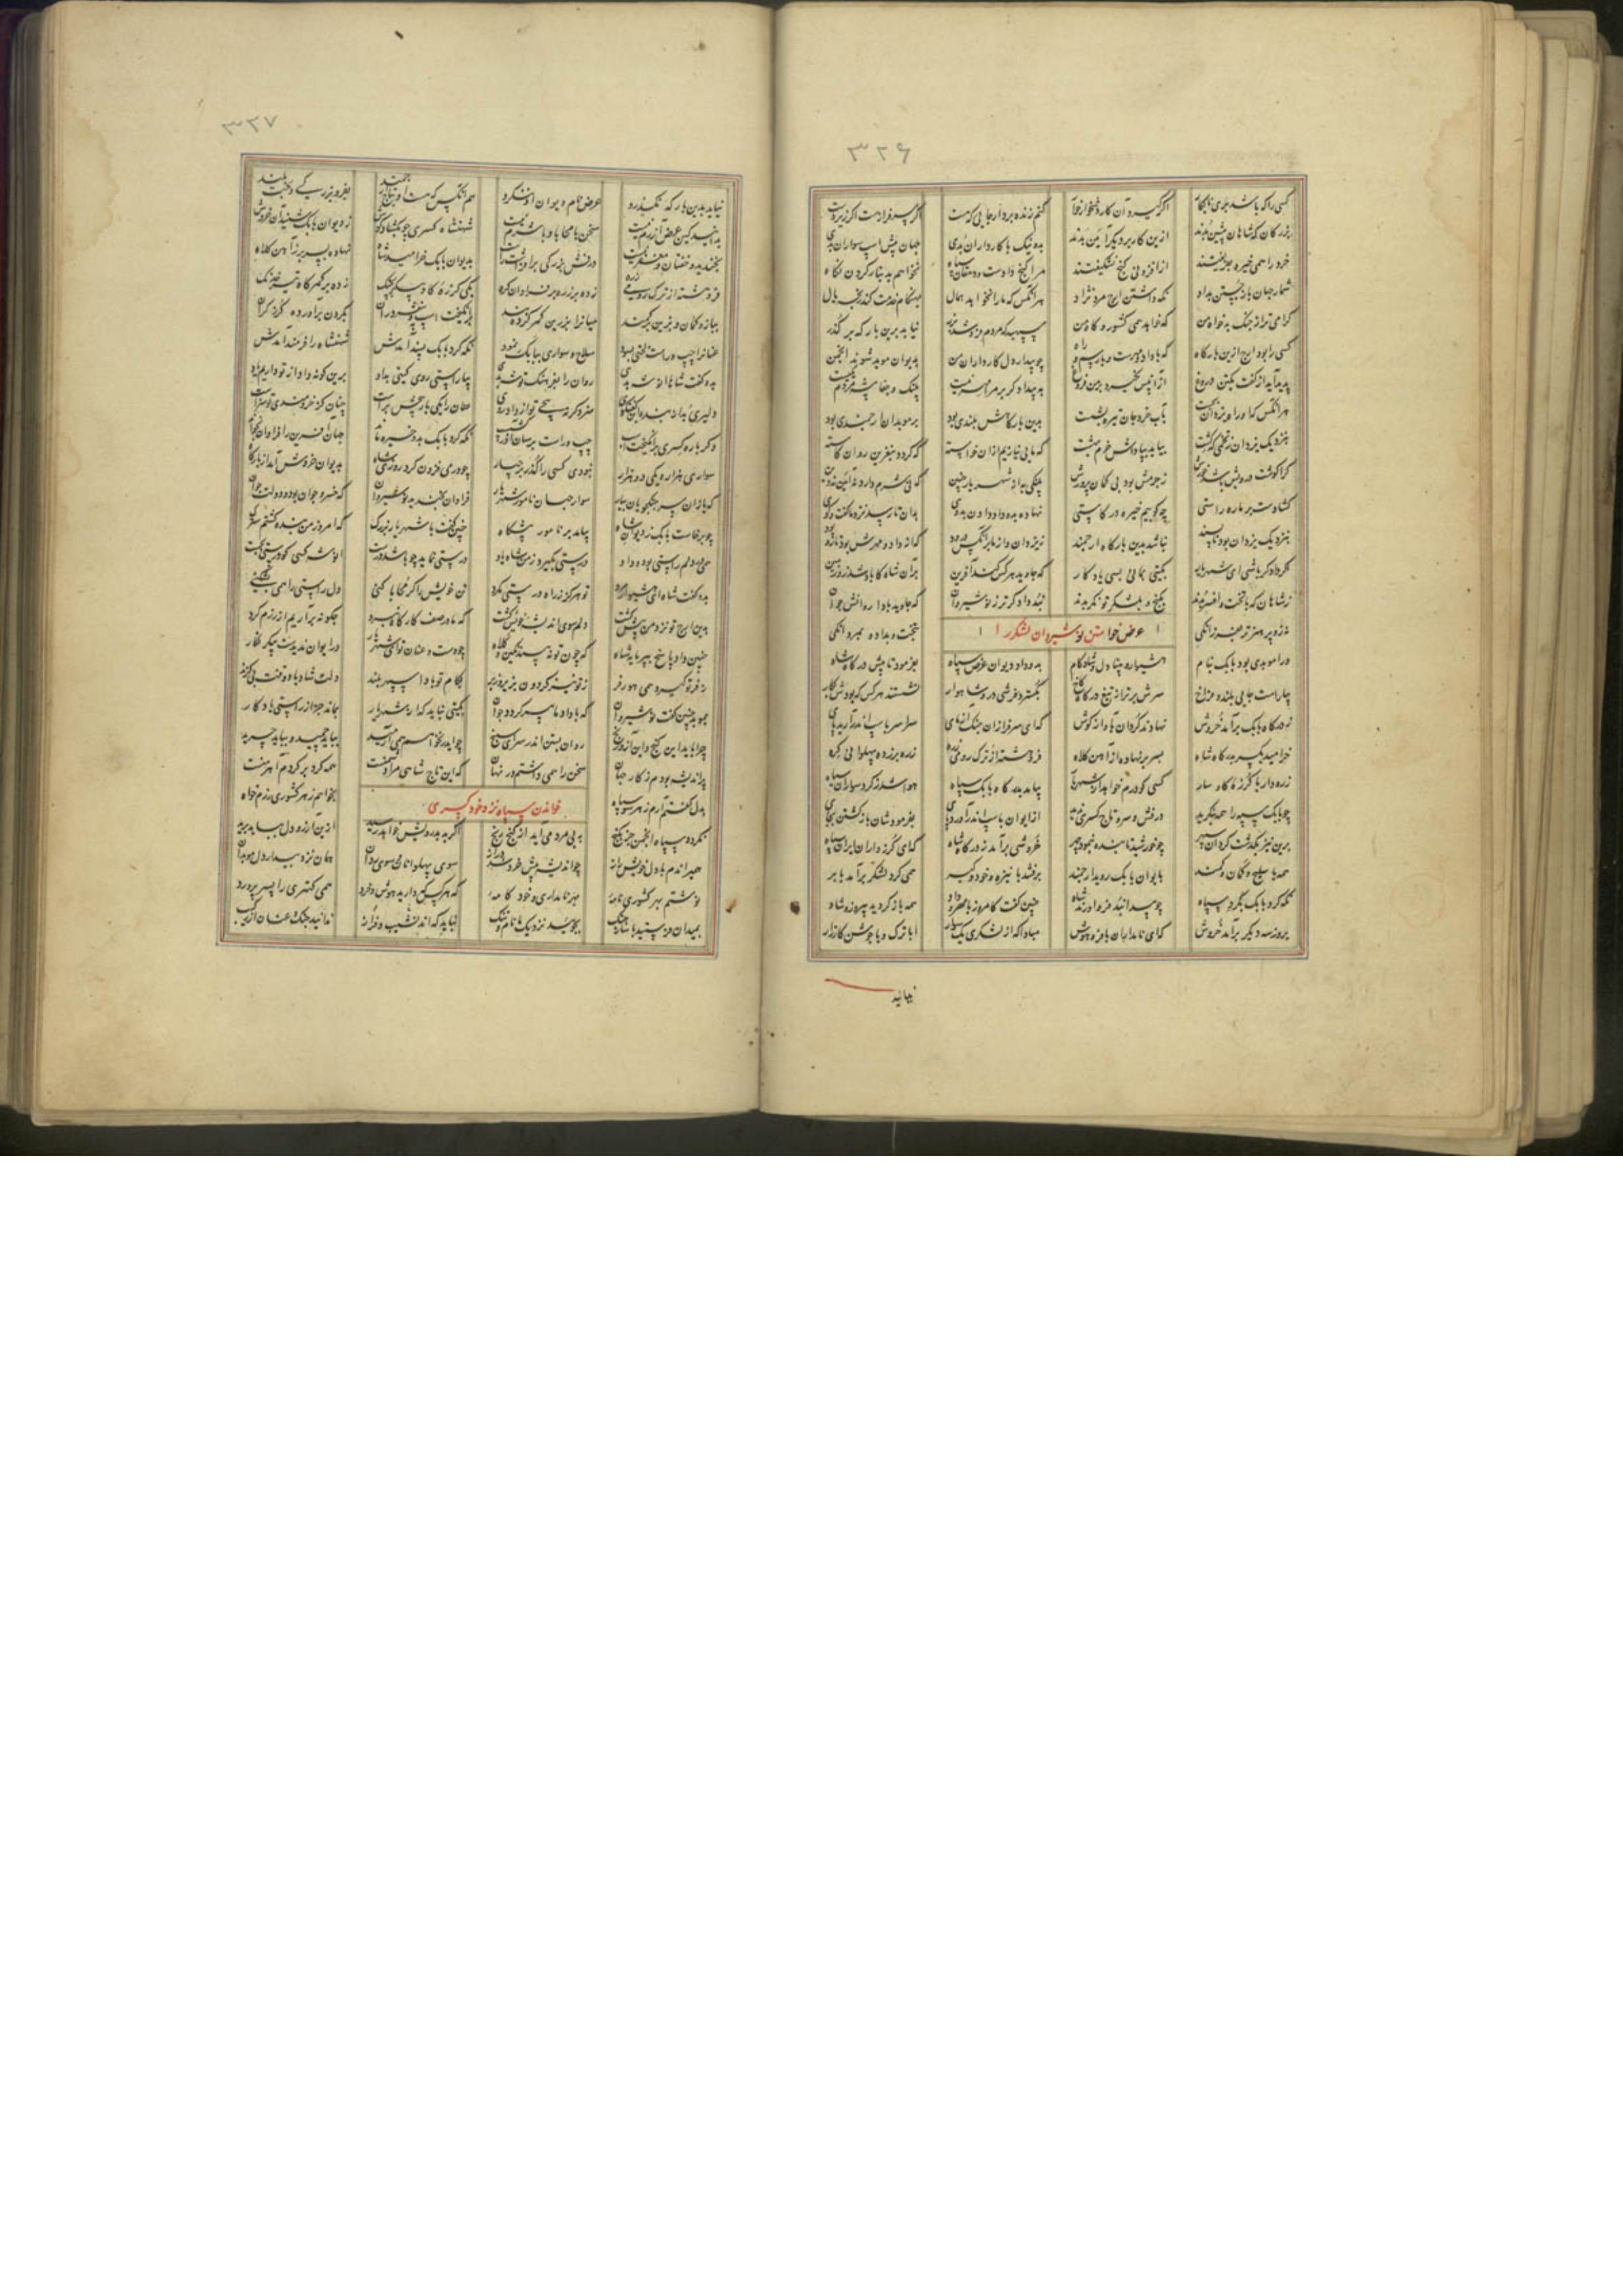 ۳۲۶
کسی را که باشد اگر گیرد آن کار دشخوار خوار کنم زنده بر دار جایی که هست اگر سرفرازست اگر زیردست
بزرگان که شاهان پیشین بدند ازین کار بر دیگر آئین بدند بد و نیک با کارداران بدی جهان پیش اسپ سواران بدی
خرد را همی خیره بفریفتند از افزونی گنج نشکیفتند مرا گنج دادست و دهقان سپاه نخواهم بدینار کردن نگاه
شمار جهان بازجستن بداد نگه داشتن ارج مرد نژاد هر آنکس که ما را نخواهد همال بهنگام
گرامی تر از جنگ بدخواه من که خواهد همی کشور و گاه من سپهبد که مردم فروشد بزر نیابد برین بارگه بر گذر
کسی را بود ارج ازین بارگاه که با داد و مهرست و با رسم و راه چو بیداردل کارداران من بدیوان موبد شوند انجمن
پدید آید از گفت یکتن دروغ ازان پس نگیرد بر من فروغ به بیدادگر بر مرا مهر نیست پلنگ و جفاپیشه مردم یکیست
هر آنکس که او راه یزدان بجست بآب خرد جان تیره بشست بدین بارگاهش بلندی بود بر موبدان ارجمندی بود
بنزدیک یزدان ز تخمی که کشت بیابد بپاداش خرم بهشت که ما بی نیازیم ازان خواسته که گردد بنفرین روان کاسته
کرا گوشت درویش باشد خورش ز چرمش بود بی گمان پرورش پلنگی به از شهریار چنین که نی شرم دارد نه آئین نه دین
گشادست بر ما در راستی چو کوبیم خیره در کاستی
بنزدیک یزدان بود ناپسند نباشد بدین بارگاه ارجمند ز یزدان و از ما بر آنکس درود که از داد و مهرش بود تار و پود
اگر دادگر باشی ای شهریار بگیتی بمانی بسی یادگار که جاوید هر کس کند آفرین بران شاه کاباد شد زو زمین
ز شاهان که با تخت و افسر بدند بگنج و بلشکر توانگر بدند نبد دادگرتر ز نوشیروان که جاوید بادا روانش جوان
نه زو پرهنرتر بفرزانگی بتخت و بداد و بمردانگی
عرض خواستن نوشیروان لشکر را
ورا موبدی بود بابک بنام هشیوار و بینادل و شادکام بدو داد دیوان عرض سپاه بفرمود تا پیش درگاه شاه
بیاراست جایی بلند و فراخ سرش برتر از تیغ درگاه کاخ بگسترد فرشی در و شاهوار نشستند هر کس که بودش بکار
ز درگاه بابک برآمد خروش نهادند گردان بآواز گوش که ای سرفرازان جنگ آزمای سراسر باسپ اندر آرید پای
خرامید یکسر بدرگاه شاه بسر بر نهاده از آهن کلاه فروهشته از ترک رومی زره زره برزده پهلوانی گره
زره دار با گرزه گاوسار کسی کو درم خواهد از شهریار بیامد بدرگاه بابک سپاه هوا شد ز گرد سواران سیاه
چو بابک سپه را همه بنگرید درفش و سر تاج کسری ندید از ایوان باسپ اندر آورد پای بفرمودشان بازگشتن بجای
برین نیز بگذشت گردان سپهر چو خورشید تابنده بنمود چهر خروشی برآمد ز درگاه شاه که ای گرزداران ایران سپاه
همه با سلیح و کمان و کمند بایوان بابک روید ارجمند برفتند با نیزه و خود و گبر همی گرد لشکر برآمد بابر
نگه کرد بابک بگرد سپاه چو پیدا نبد فر و اورند شاه چنین گفت کامروز با مهر و داد همه بازگردید پیروز و شاد
بروز سه دیگر برآمد خروش که ای نامداران با فر و هوش مبادا که از لشکری یکسوار ابا ترک و با جوشن کارزار
نیاید
۳۲۷
نیاید بدین بارگه نگذرد عرض نام و دیوان او ننگرد هم آنکس که هست او بتاج ارجمند بفر و بزرگی و تخت بلند
بداند کین عرض آزرم نیست سخن با محابا و با شرم نیست شهنشاه کسری چو بگشاد گوش ز دیوان بابک شنید آن خروش
بخندید و خفتان و مغفر بخواست درفش بزرگی برافراشت راست بدیوان بابک خرامید شاه نهاده بسر بر ز آهن کلاه
فروهشته از ترک رومی زره زده بر زره بر فراوان گره یکی گرزه گاوپیکر بچنگ زده بر کمرگاه تیر خدنگ
ببازو کمان و بزین بر کمند میانرا بزرین کمر کرده بند برانگیخت اسپ و بیفشرد ران بگردن برآورده گرز گران
عنانرا چپ و راست لختی بسود سلیح سواری ببابک نمود نگه کرد بابک پسند آمدش شهنشاه را فرمند آمدش
بدو گفت شاها انوشه بدی روان را بفرهنگ توشه بدی بیاراستی روی گیتی بداد برین گونه داد از تو داریم یاد
دلیری بد از بنده این گفتگوی سزد گر نپیچی تو از داد روی عنان را یکی باز پیچی براست چنان کز خردمندی تو سزاست
دگر باره کسری برانگیخت اسپ چپ و راست برسان آذرگشسپ نگه کرد بابک بدو خیره ماند جهان آفرین را فراوان بخواند
سواری هزار و یکی دو هزار نبودی کسی را گذر بر چهار درمی فزون کرد روزی شاه بدیوان خروش آمد از بارگاه
سر جنگجویان بیار سوار جهان نامور شهریار فراوان بخندید نوشیروان که خسرو جوان بود و دولت جوان
چو برخاست بابک ز دیوان شاه بیامد بر نامور پیشگاه چنین گفت با شهریار بزرگ که امروز من بنده گشتم سترگ
همی در دلم راستی بود و داد درستی نگیرد ز من شاه یاد درستی نماید چو باشد درشت انوشه کسی کو درستی
بدو گفت شاه ای هشیوار مرد تو هرگز ز راه درستی مگرد تن خویش را گر محابا کنی دل راستی را همی بشکنی
بدین ارج تو نزد من بیش گشت دلم سوی اندیشه خویش گشت که ما در صف کار چگونه برآریم از رزم گرد
چنین داد پاسخ بپرمایه شاه که چون تو نه بیند نگین و کلاه چو دست و عنان تو ای شهریار در ایوان ندیدست پیکر نگار
ز فر تو گیرد همی هور فر بکام تو بادا سپهر بلند دلت شاد بادا و تخت بی گزند
بموبد چنین گفت نوشیروان که با داد ما پیر گردد جوان بگیتی نباید که از شهریار بماند جز از راستی یادگار
چرا باید این گنج و این آز و رنج روان بستن اندر سرای سپنج چو ایدر نخواهیم همی آرمید بباید چمید و بباید چرید
پراندیشه بودم ز کار جهان سخن را همی داشتم در نهان که این تاج شاهی مرا دشمنست همه گرد بر گردم آهرمنست
بدل گفتم آرم ز هر سو سپاه بخواهم ز هر کشوری رزم خواه
خواندن سپاه نزد خود کسری
نگردد سپاه انجمن جز بگنج به بی مردمی آید از گنج رنج اگر بد بدرویش خواهد رسید ازین آرزو دل بباید برید
همیراندم با دل خویش راز چو اندیشه پیش خرد شد دراز سوی پهلوانان و سوی ردان همان نزد بیدار دل موبدان
نوشتم بهر کشوری نامه بهر نامداری و خودکامه که هر کس که دارید هوش و خرد همی کهتری را پسر پرورد
بمیدان فرستید با ساز جنگ بجوئید نزدیک ما نام و ننگ نباید که اندر نشیب و فراز ندانند چنگ و عنان از رکیب